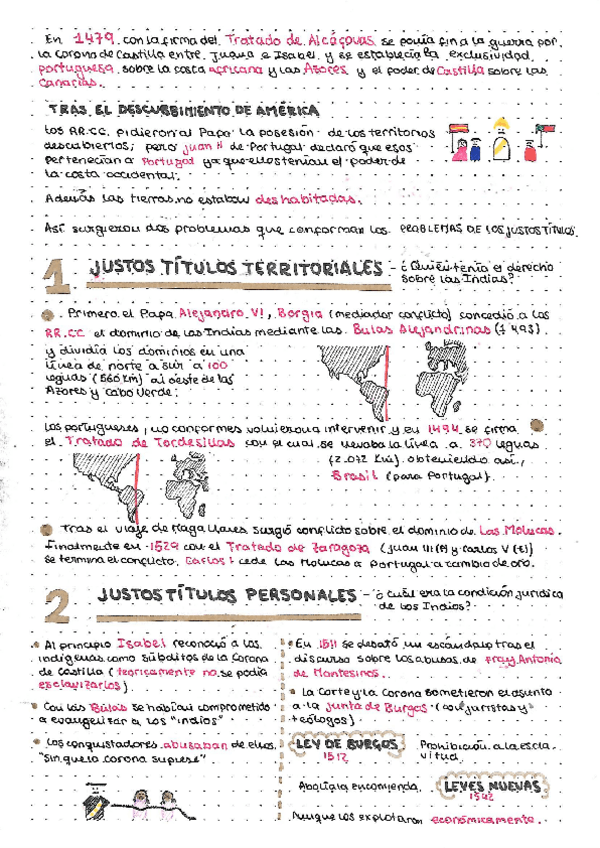 En 1479 con la firma del Tratado de Alcáçovas se ponía fin a la guerra por
la corona de Castilla entre Juana e Isabel y se establecía la exclusividad
portuguesa sobre la costa africana y las Azores y el poder de Castilla sobre las
Canarias.
TRAS EL DESCUBRIMIENTO DE AMÉRICA
Los RR.CC. pidieron al Papa la posesión de los territorios
descubiertos; pero Juan II de Portugal declaró que esos
pertenecían a Portugal ya que ellos tenían el poder de
la costa occidental.
Además las tierras no estaban deshabitadas.
Así surgieron dos problemas que conforman los PROBLEMAS DE LOS JUSTOS TÍTULOS.
1 JUSTOS TÍTULOS TERRITORIALES - ¿Quién tenía el derecho
sobre las Indias?
Primero el Papa Alejandro VI, Borgia (mediador conflicto) concedió a los
RR.CC el dominio de las Indias mediante las Bulas Alejandrinas (1493)
y dividía los dominios en una
línea de norte a sur a 100
leguas (560 km) al oeste de las
Azores y Cabo Verde.
Los portugueses, no conformes volvieron a intervenir y en 1494 se firma
el Tratado de Tordesillas con el cual se llevaba la línea a 370 leguas
(2.072 km) obteniendo así,
Brasil (para Portugal).
Tras el viaje de Magallanes surgió conflicto sobre el dominio de Las Molucas.
Finalmente en 1529 con el Tratado de Zaragoza (Juan III (P) y Carlos V (E))
se termina el conflicto. Carlos I cede las Molucas a Portugal a cambio de oro.
2 JUSTOS TÍTULOS PERSONALES - ¿Cuál era la condición jurídica
de los Indios?
Al principio Isabel reconoció a los
indígenas como súbditos de la Corona
de Castilla (teóricamente no se podía
esclavizarlos)
Con las Bulas se habían comprometido
a evangelizar a los "indios"
Los conquistadores abusaban de ellos
"sin que la corona supiese"
En 1511 se desató un escándalo tras el
discurso sobre los abusos de Fray Antonio
de Montesinos.
La Corte y la Corona sometieron el asunto
a la Junta de Burgos (con juristas y
teólogos)
LEY DE BURGOS
1512
Prohibición a la escla-
vitud
Abolía la encomienda
LEYES NUEVAS
1542
Aunque los explotaron económicamente.